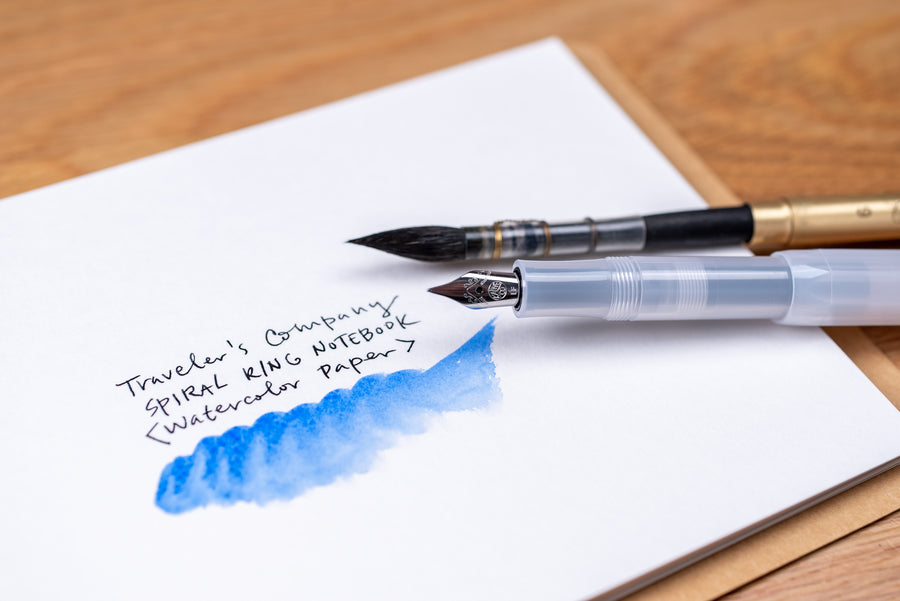 Traveler's Company
SPIRAL RING NOTEBOOK
<Watercolor Paper>
6